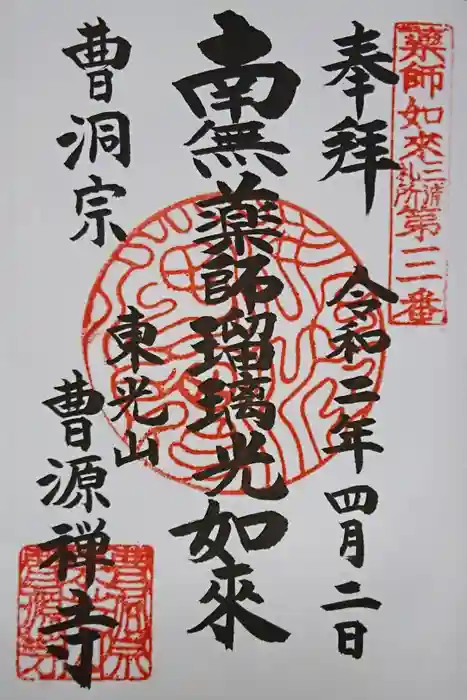 薬師如來三浦札所第二番
奉拜
令和二年四月二日
南無薬師瑠璃光如來
東光山
曹洞宗
曹源禅寺